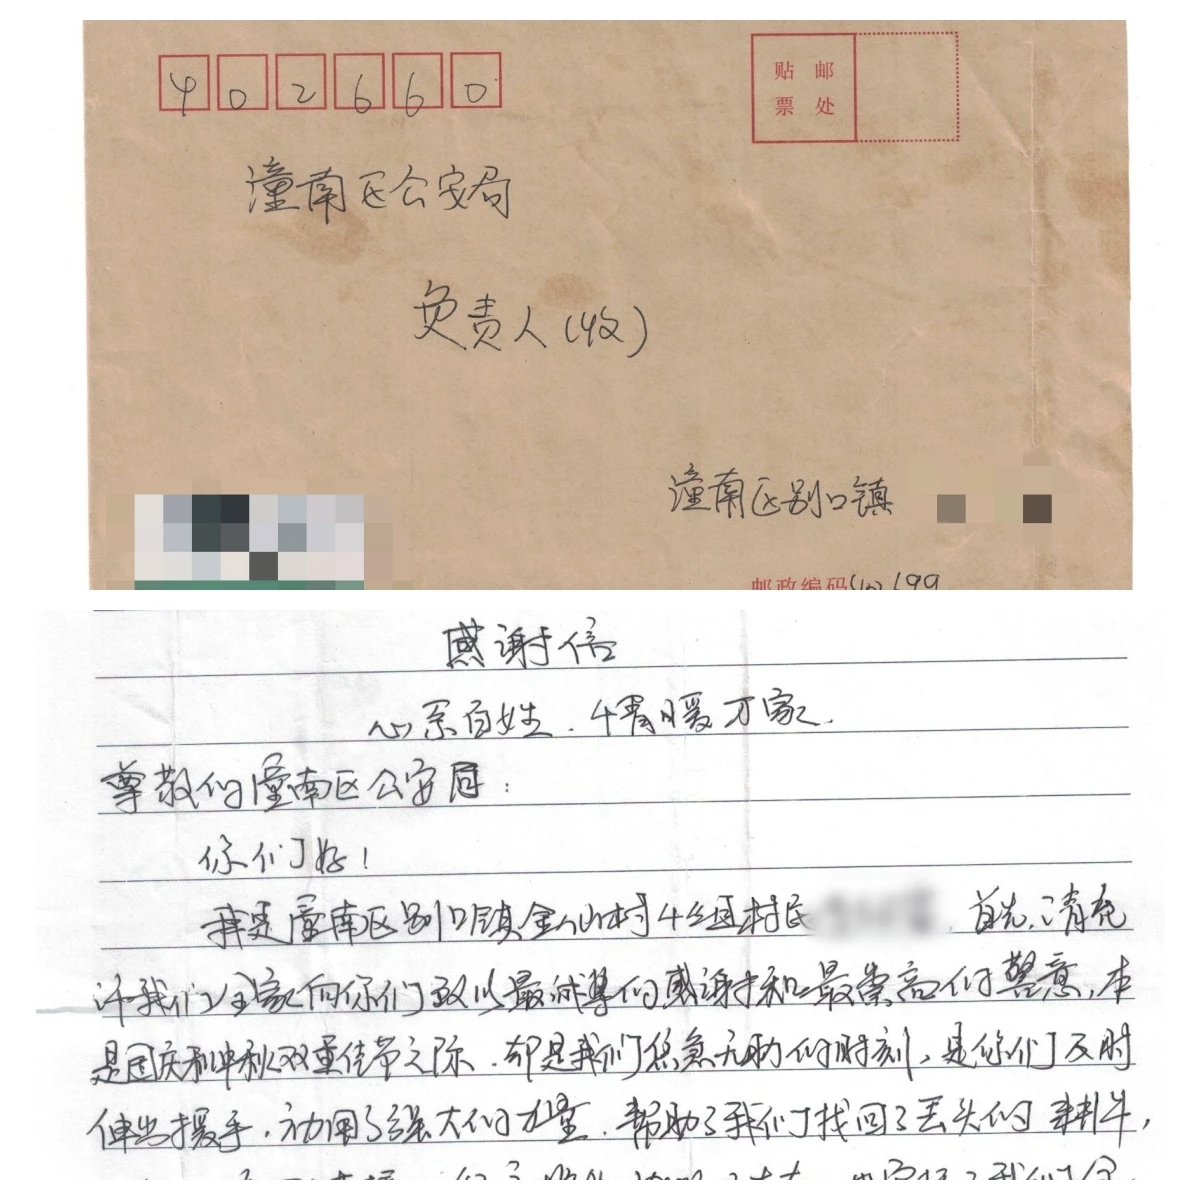 402660
贴 邮
票 处
潼南区公安局
负责人(收)
潼南区别口镇
邮政编码
感谢信
心系百姓.情暖万家.
尊敬的潼南区公安局:
你们好!
我是潼南区别口镇金山村4组村民 首先,请允
许我们全家向你们致以最诚挚的感谢和最崇高的警意,本
是国庆和中秋双重佳节之际.却是我们焦急无助的时刻,是你们及时
伸出援手.动用了强大的力量.帮助了我们找回了丢失的耕牛,